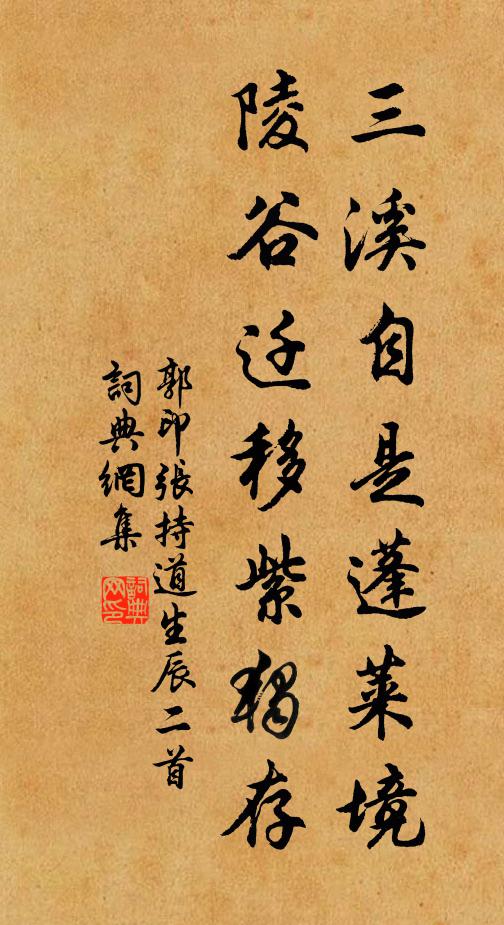 三溪自是蓬莱境
陵谷迁移紫独存
郭印張持道生辰二首
詞典網集
詞典网印